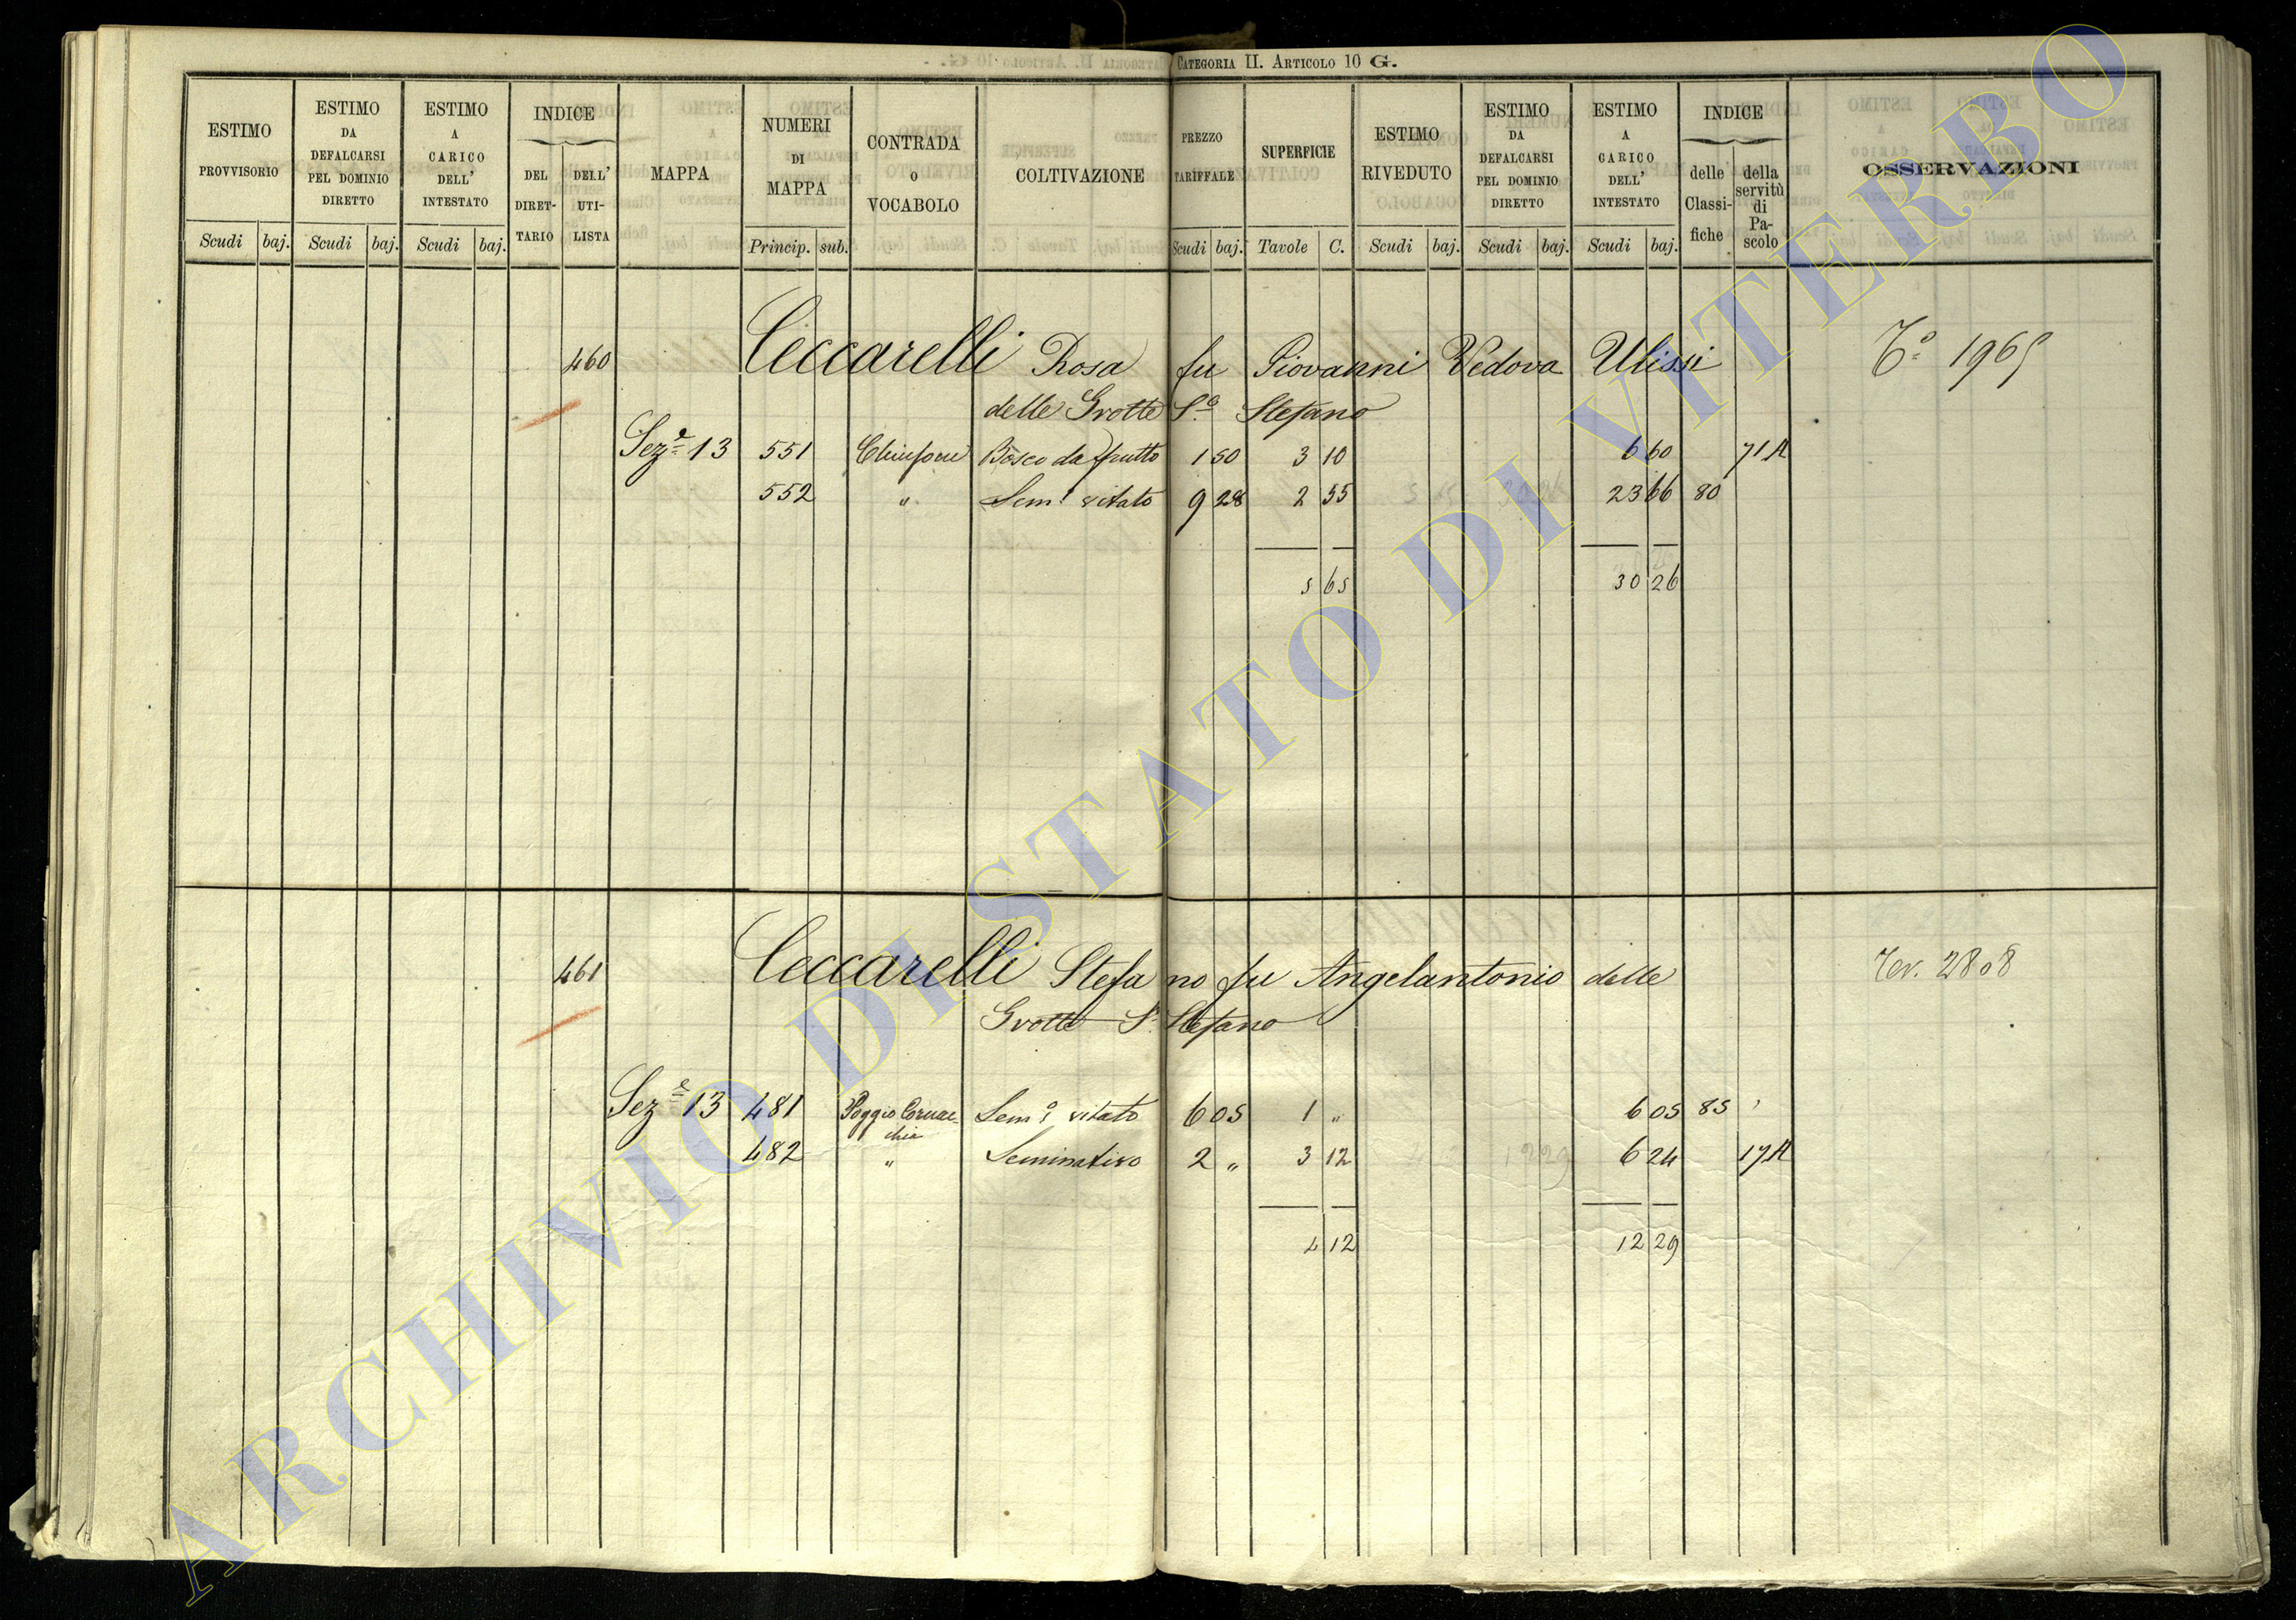 CATEGORIA II. ARTICOLO 10 G.
ESTIMO PROVVISORIO
ESTIMO DA DEFALCARSI PEL DOMINIO DIRETTO
ESTIMO A CARICO DELL' INTESTATO
INDICE
DEL DIRET-TARIO
DELL' UTI-LISTA
MAPPA
NUMERI DI MAPPA
CONTRADA O VOCABOLO
COLTIVAZIONE
PREZZO TARIFFALE
SUPERFICIE
ESTIMO RIVEDUTO
ESTIMO DA DEFALCARSI PEL DOMINIO DIRETTO
ESTIMO A CARICO DELL' INTESTATO
INDICE
delle Classi-fiche
della servitù di Pa-scolo
OSSERVAZIONI
Scudi baj. Scudi baj. Scudi baj. Princip. sub. Scudi baj. Tavole C. Scudi baj. Scudi baj. Scudi baj.
460 Ceccarelli Rosa fu Giovanni Vedova Ulissi Tº 1965
delle Grotte Sº Stefano
Sezᵉ 13 551 Bosco da frutto 1 50 3 10 6 60 71A
552 " Semº vitato 9 28 2 55 23 66 80
5 65 30 26
461 Ceccarelli Stefano fu Angelantonio delle 2808
Grotte S. Stefano
Sezᵉ 13 481 Poggio Cornac-chia Semº vitato 6 05 1 " 6 05 85
482 " Seminativo 2 " 3 12 6 24 17A
4 12 12 29
ARCHIVIO DI STATO DI VITERBO